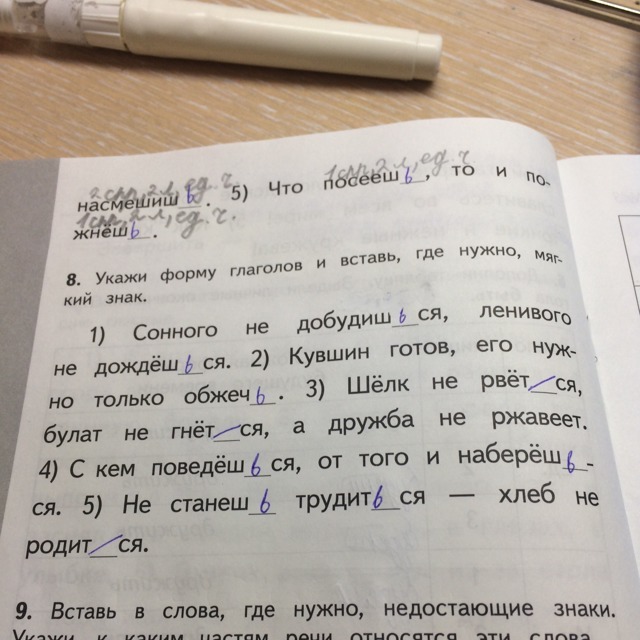 2 спр, 2 л, ед. ч. 1 спр, 2 л, ед. ч
насмешишь. 5) Что посеешь, то и по-
1 спр, 2 л, ед. ч.
жнёшь.
8. Укажи форму глаголов и вставь, где нужно, мяг-
кий знак.
1) Сонного не добудишься, ленивого
не дождёшься. 2) Кувшин готов, его нуж-
но только обжечь. 3) Шёлк не рвёт_ся,
булат не гнёт_ся, а дружба не ржавеет.
4) С кем поведёшься, от того и наберёшь-
ся. 5) Не станешь трудиться — хлеб не
родит_ся.
9. Вставь в слова, где нужно, недостающие знаки.
Укажи, к каким частям речи относятся эти слова.